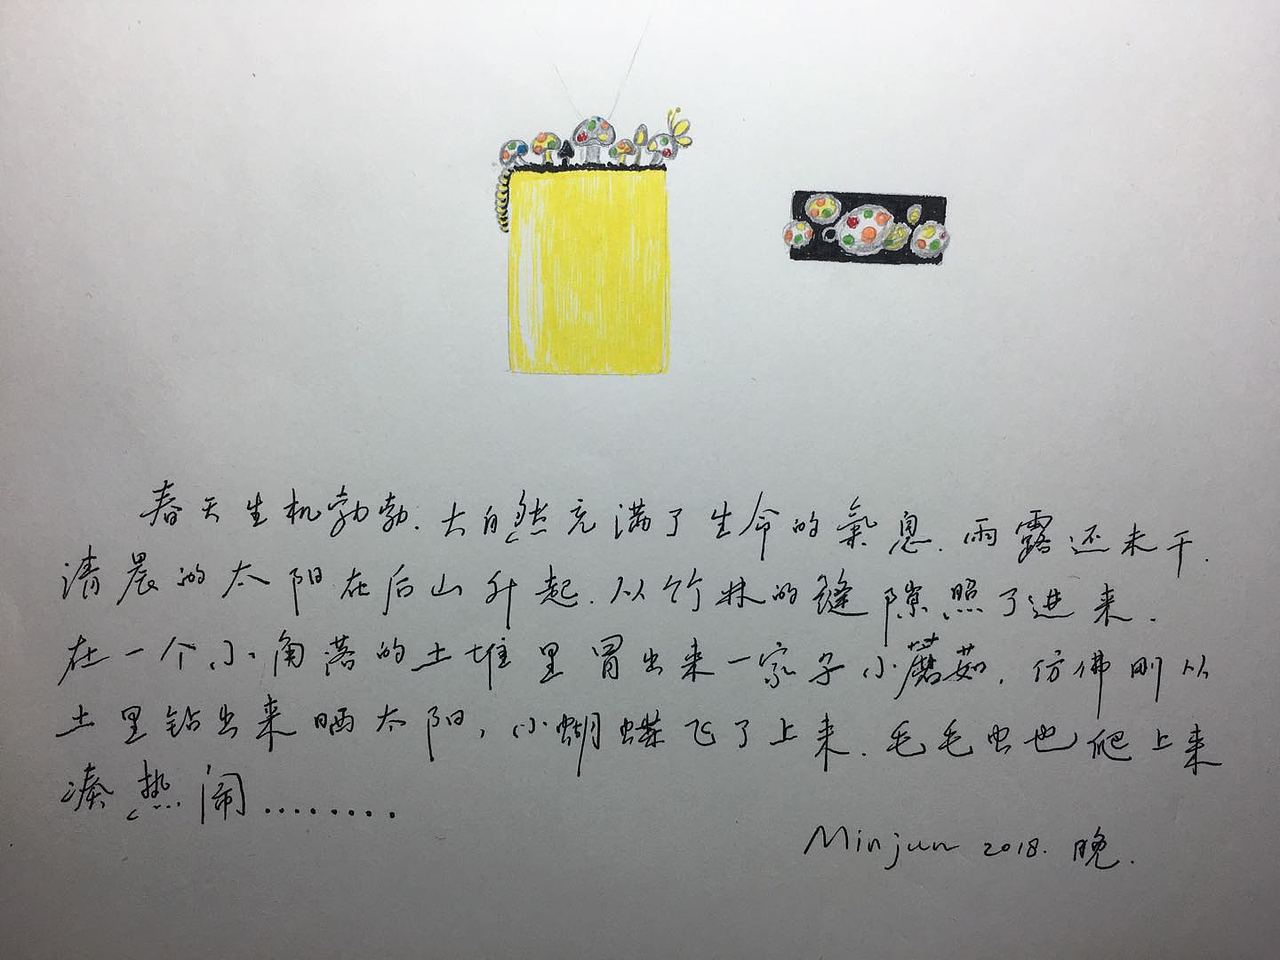 春天生机勃勃.大自然充满了生命的氣息.雨露还未干.
清晨的太阳在后山升起.从竹林的缝隙照了进来.
在一个小角落的土堆里冒出来一家子小蘑茹.仿佛刚从
土里钻出来晒太阳,小蝴蝶飞了上来.毛毛虫也爬上来
凑热闹........
Minjun 2018.晚.